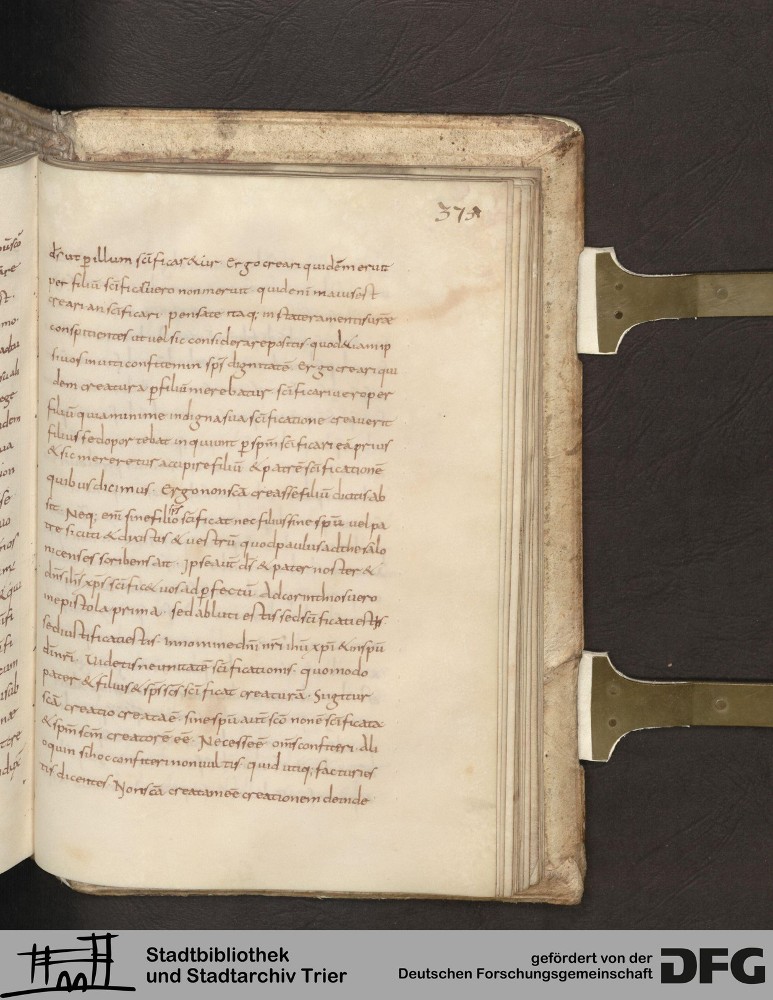 373
dš ut p illum scificaretur. Ergo creari quidem erut
per filiū scificari vero non meruit. quid enim maius est
creari an scificari. pensate itaq; in statera mentis uræ
conspicientes ut vel sic considerare possitis. quod etiam ip
si vos inviti confitemini sps dignitatē. Ergo creari qui
dem creatura p filiū merebatur. scificari vero per
filiū quia minime indigna sua scificatione creaverit
filius sed oportebat inquiunt p spm scificari eā prius
& sic mereretur accipere filiū & patrē scificationē
quibus dicimus. Ergo non scā creasse filiū dicitis ab
sit. Neq; enī sine filio sps scificat nec filius sine spū vel pa
tre sicuti & christus & vestrū quod paulus ad thesalo
nicenses scribens ait. Ipse aut ds & pater noster &
dns ihs xps scificet vos ad pfectū. Ad corinthios vero
in epistola prima. sed abluti estis sed scificati estis
sed iustificati estis. in nomine dni nri ihu xpi & in spū
di nri. Videtis ne unitatē scificationis. quomodo
pater & filius & sps scs scificat creaturā. Si igitur
scā creatio creata ē. sine spū aut scō non ē scificata
& spm scm creatorē ēē. Necesse ē. oms confiteri. Ali
oquin si hoc confiteri non vultis. quid utiq; facturi es
tis dicentes. Non scā creatam ēē creationem deinde
Stadtbibliothek
und Stadtarchiv Trier
gefördert von der
Deutschen Forschungsgemeinschaft
DFG